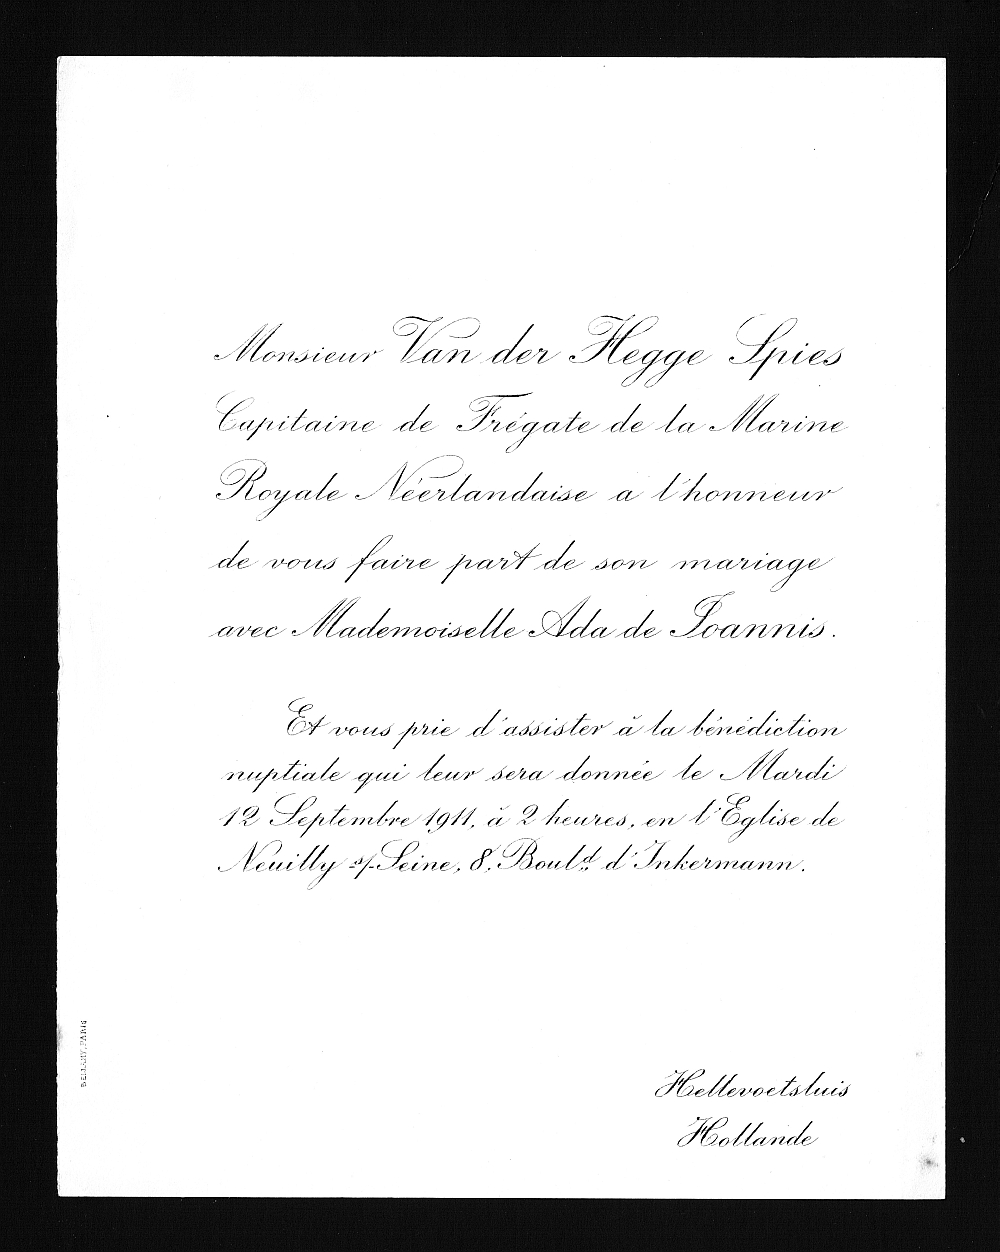 Monsieur Van der Hegge Spies
Capitaine de Frégate de la Marine
Royale Néerlandaise a l'honneur
de vous faire part de son mariage
avec Mademoiselle Ada de Joannis.
Et vous prie d'assister à la bénédiction
nuptiale qui leur sera donnée le Mardi
12 Septembre 1911, à 2 heures, en l'Eglise de
Neuilly s/-Seine, 8, Boul.d d'Inkermann.
BELLAMY, PARIS
Hellevoetsluis
Hollande